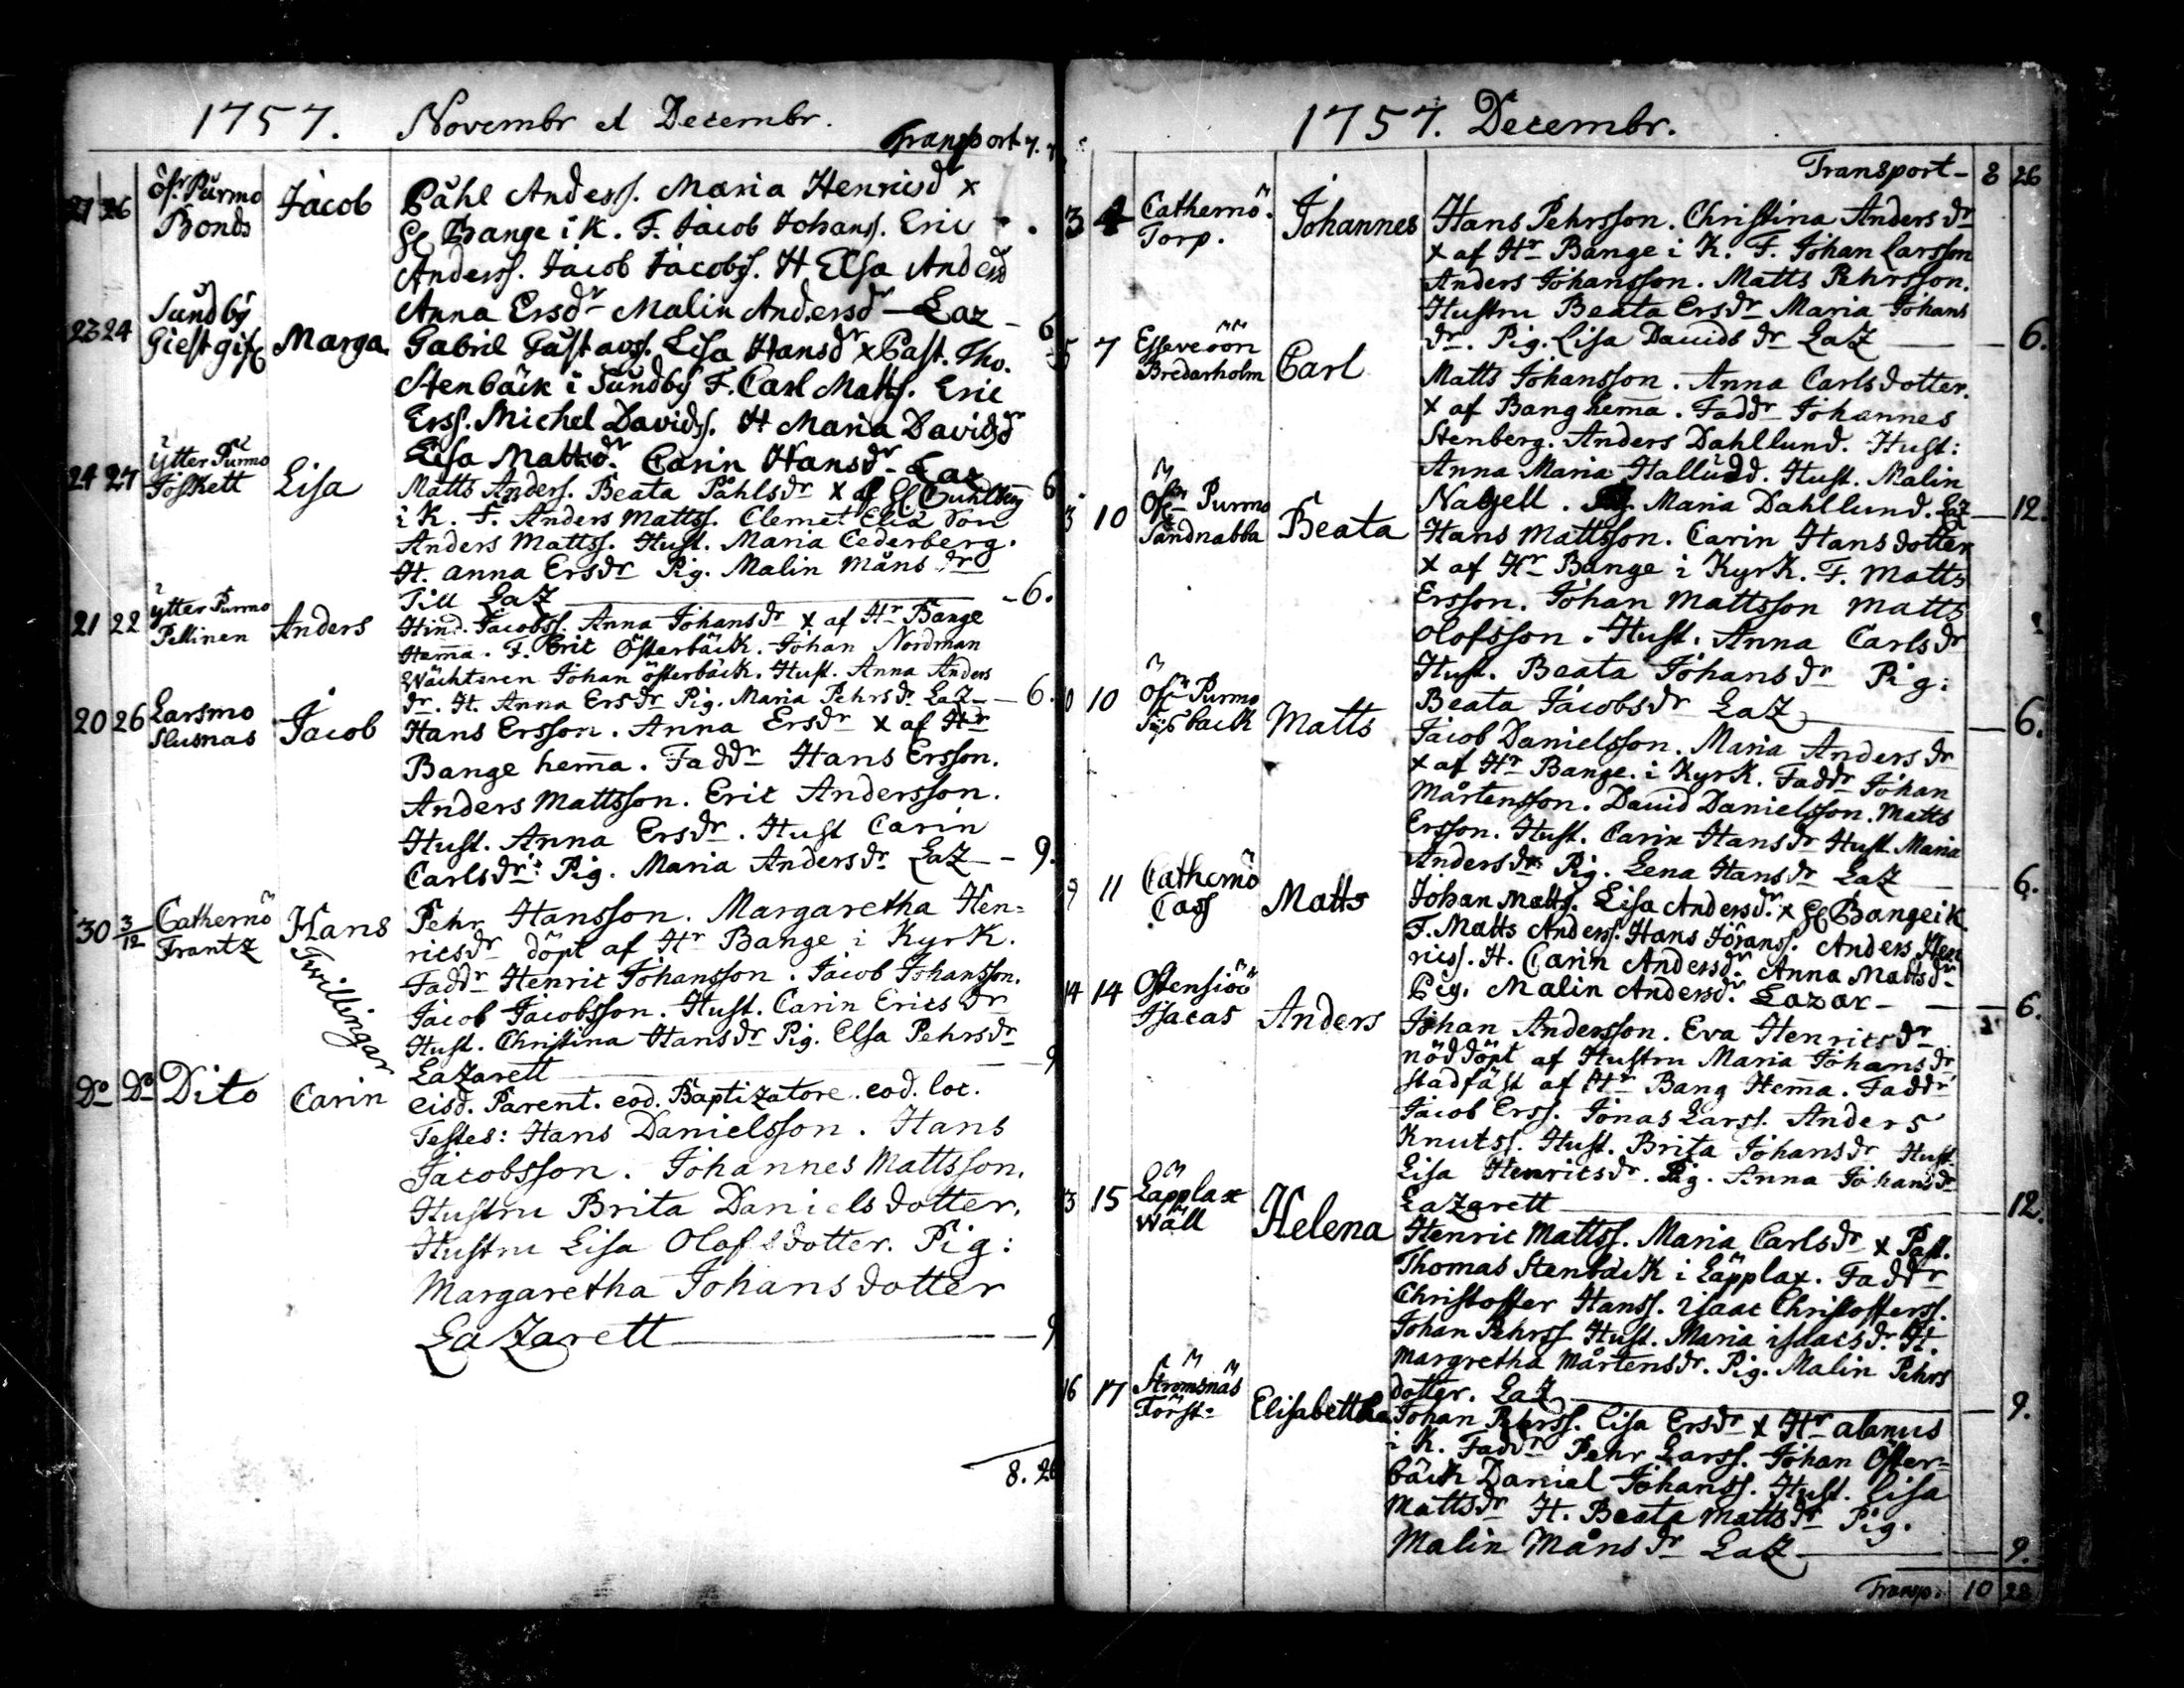 1757. Novembr et Decembr.
Transport 7.
21 26 Öfr. Purmo Bonds Jacob Påhl Anderss. Maria Henricsd x
Bange i K. F. Jacob Johans. Eric
Anderss. Jacob Jacobss. H Elsa Andersd
Anna Ersdr Malin Andersdr Laz - 6
23 24 Sundby Giestgif Marga. Gabriel Gustavss. Lisa Hansdr x Past. Tho.
Stenbäck i Sundby F. Carl Matts. Eric
Erss. Michel Davidss. H Maria Davidsdr
Lisa Mattsdr. Carin Hansdr. Laz 6
24 27 Ytter Purmo Foskett Lisa Matts Anderss. Beata Påhlsdr x af
i K. F. Anders Mattss. Clemet Elia Son
Anders Mattss. Hust. Maria Cederberg.
H. Anna Ersdr Pig. Malin Månsdr
Till LaZ - 6.
21 22 ytter Purmo Pellinen Anders Hind. Jacobss. Anna Johansdr x af Hr Bange
Hema. F. Eric Österbäck. Johan Nordman
Wächtaren Johan österbäck. Hust. Anna Anders
dr. H. Anna Ersdr Pig. Maria Pehrsdr LaZ - 6.
20 26 Larsmo Slusnas Jacob Hans Ersson. Anna Ersdr x af Hr
Bange hema. Faddr Hans Ersson.
Anders Mattsson. Eric Andersson.
Hust. Anna Ersdr. Hust Carin
Carlsdr: Pig. Maria Andersdr LaZ - 9.
30 3/12 Cathernö Frantz Hans Pehr Hansson. Margaretha Hen=
ricsdr döpt af Hr Bange i Kyrk.
Faddr Henric Johansson. Jacob Johansson.
Jacob Jacobsson. Hust. Carin Ericsdr
Hust. Christina Hansdr Pig. Elsa Pehrsdr
Lazarett 9
Twillingar
Do Do Dito Carin eisd. Parent. eod. Baptizatore. eod. loc.
Testes: Hans Danielsson. Hans
Jacobsson. Johannes Mattsson.
Hustru Brita Danielsdotter.
Hustru Lisa Olofsdotter. Pig:
Margaretha Johansdotter
LaZarett 9
8. 26
1757. Decembr.
Transport - 8 26
3 4 Cathernö. Torp. Johannes Hans Pehrsson. Christina Andersdr
x af Hr Bange i K. F. Johan Larsson
Anders Johansson. Matts Pehrsson.
Hustru Beata Ersdr Maria Johans
dr. Pig. Lisa Davidsdr LaZ - 6.
5 7 Esseveöön Bredarholm Carl Matts Johansson. Anna Carlsdotter.
x af Bang hema. Faddr Johannes
Stenberg. Anders Dahllund. Hust:
Anna Maria Halludd. Hust. Malin
Nabsell. Maria Dahllund. LaZ - 12.
3 10 Öfr Purmo Sandnabba Beata Hans Mattsson. Carin Hansdotter
x af Hr Bange i Kyrk. F. Matts
Ersson. Johan Mattsson Matts
Olofsson. Hust. Anna Carlsdr
Hust. Beata Johansdr Pig:
Beata Jacobsdr LaZ - 6.
10 Öfr Purmo Matts Jacob Danielsson. Maria Andersdr
x af Hr Bange. i Kyrk. Faddr Johan
Mårtensson. David Danielsson. Matts
Ersson. Hust. Carin Hansdr Hust. Maria
Andersdr Pig. Lena Hansdr LaZ - 6.
9 11 Cathernö Cass Matts Johan Mattss. Lisa Andersdr. x Bange i K
F. Matts Anderss. Hans Jöranss. Anders Hen
ricss. H. Carin Andersdr. Anna Mattsdr.
Pig. Malin Andersdr. Lazar - 6.
14 14 Ostensiöö Isacas Anders Johan Andersson. Eva Henricsdr
nöddöpt af Hustru Maria Johansdr
stadfäst af Hr Bang Hema. Faddr
Jacob Erss. Jonas Larss. Anders
Knutss. Hust. Brita Johansdr Hust.
Lisa Henricsdr. Pig. Anna Johansdr
LaZarett 12.
13 15 Läpplax Wäll Helena Henric Mattss. Maria Carlsdr x Past.
Thomas Stenbäck i Läpplax. Faddr
Christoffer Hanss. isaac Christofferss.
Johan Pehrss Hust. Maria isaacsdr. H.
Margretha Mårtensdr. Pig. Malin Pehrs
dotter. LaZ 9.
16 17 Strömsnäs Först= Elisabetha Johan Pehrss. Lisa Ersdr x Hr alanus
i K. Faddr Pehr Larss. Johan Öster=
bäck Daniel Johanss. Hust. Lisa
Mattsdr H. Beata Mattsdr Pig.
Malin Månsdr LaZ 9.
Transp. 10 28